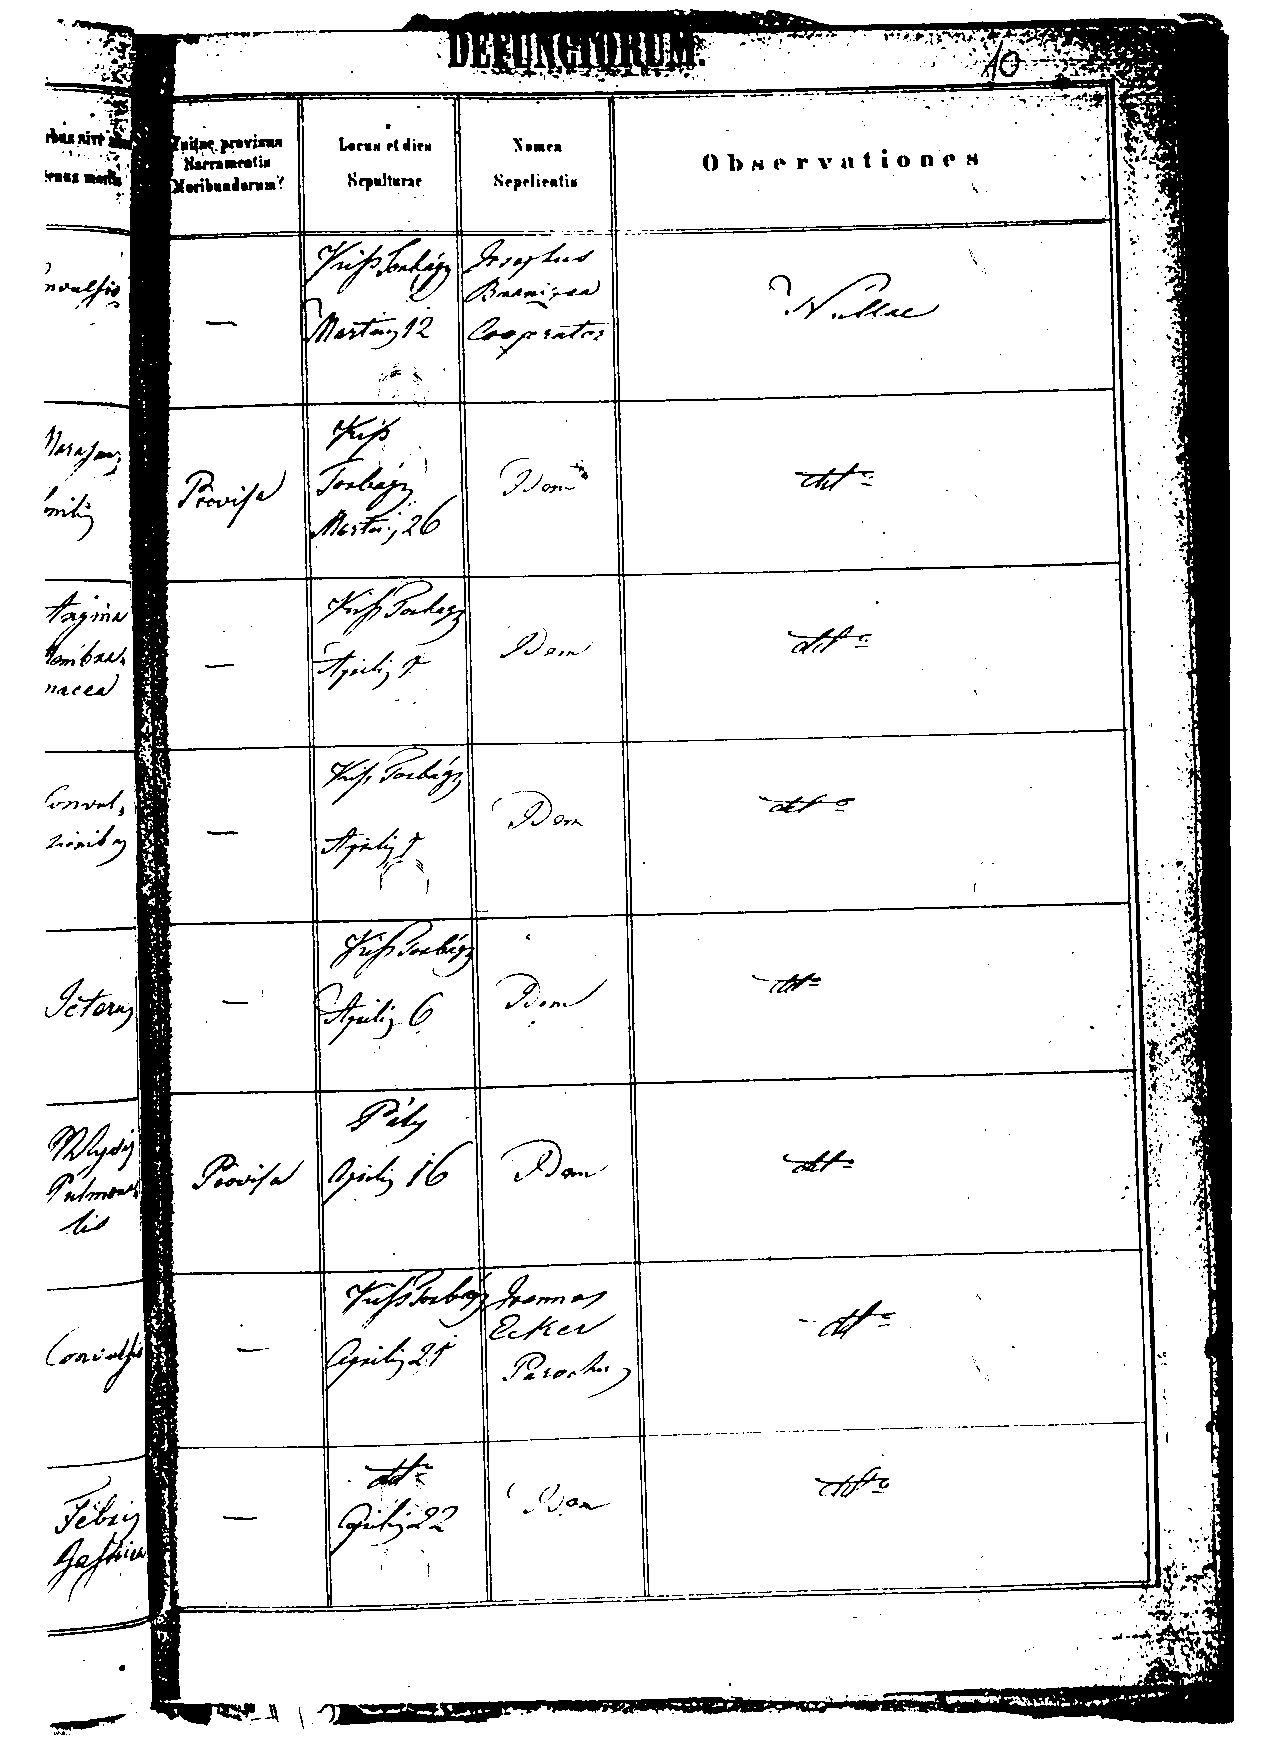 DEFUNCTORUM.
10
provisus
Sacramentis
Moribundorum?
Locus et dies
Sepulturae
Nomen
Sepelientis
Observationes
—
Kiss Torbágy
Martii 12
Josephus
Cooperator
Nullae
Provisa
Kiss
Torbágy
Martii 26
Idem
dtto
Angina
Membra-
nacea
—
Kiss Torbágy
Aprilis
Idem
dtto
Convul-
sionibus
—
Kiss Torbágy
Aprilis
Idem
dtto
Icterus
—
Kiss Torbágy
Aprilis 6
Idem
dtto
Pulmona-
lis
Provisa
Páty
Aprilis 16
Idem
dtto
Convulsio
—
Kiss Torbágy
Aprilis 21
Joannes
Ecker
Parochus
dtto
Febris
Gastrica
—
dtto
Aprilis 22
Idem
dtto